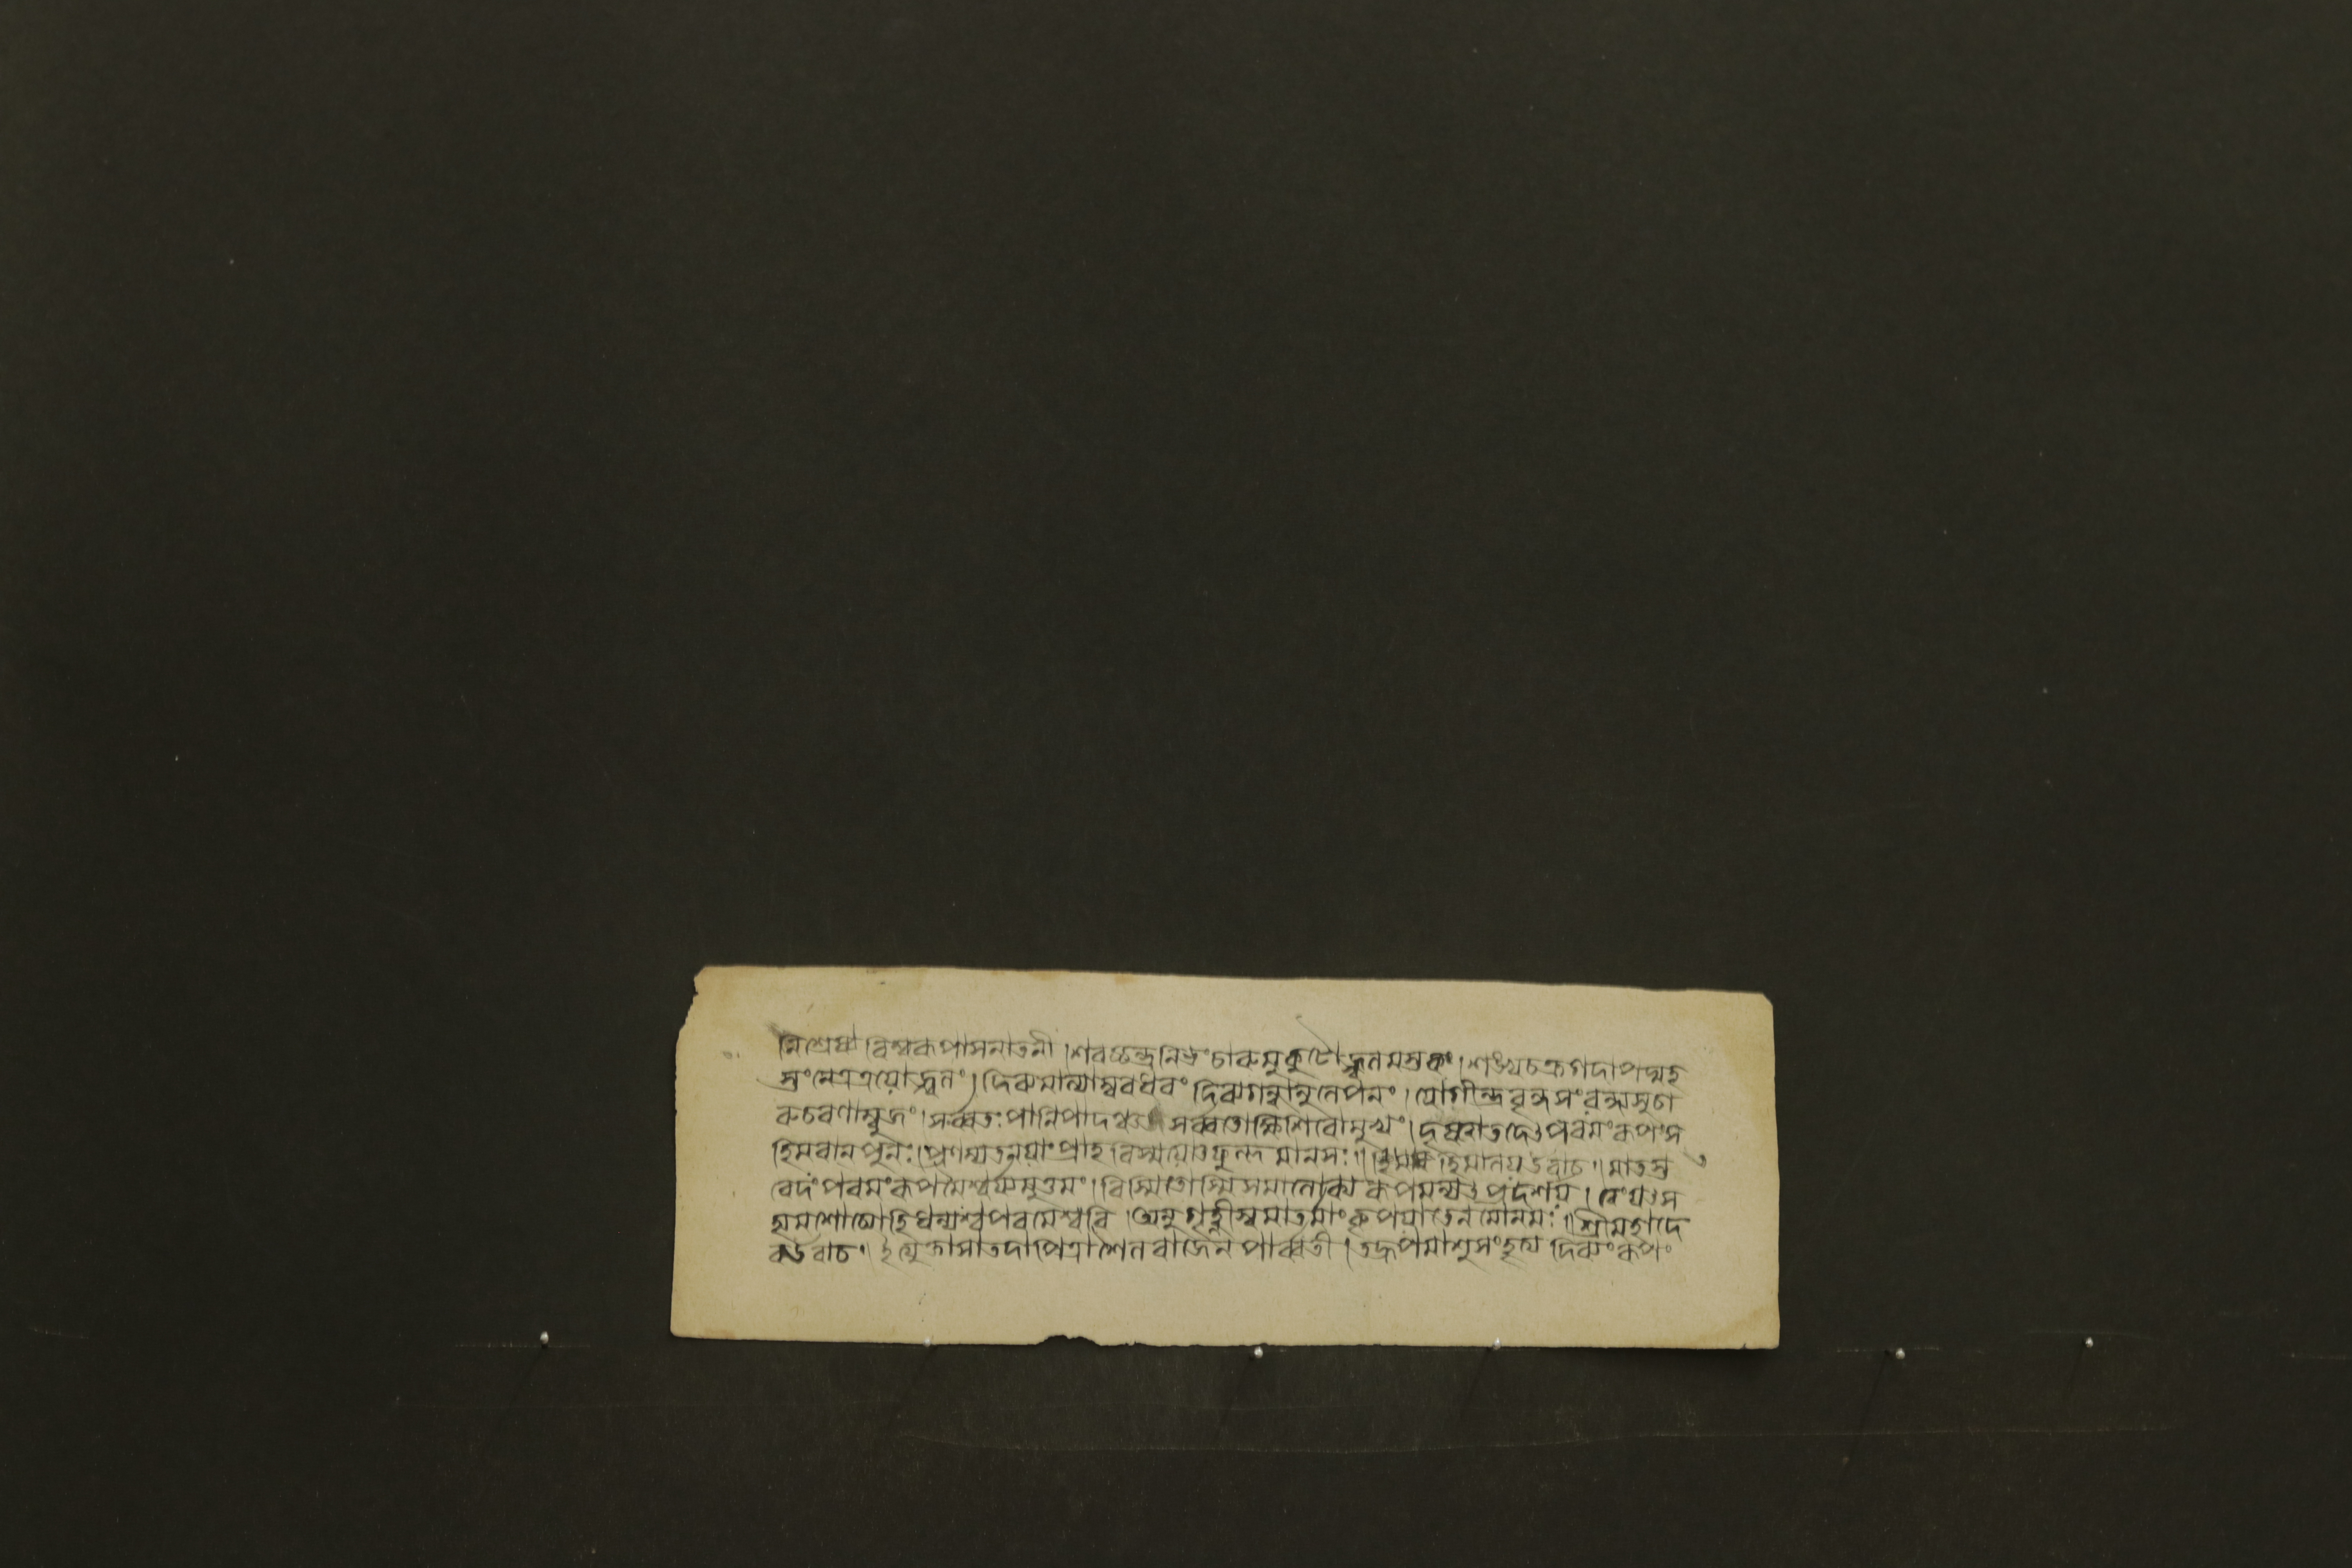 নিশ্রেষ্ঠা বিশ্বৰূপাসনাতনী। শৰচ্চন্দ্ৰনিভং চাৰুমুকুটোজ্জ্বলমস্তকং। শঙ্খচক্ৰগদাপদ্মহ
স্তংনেত্ৰত্ৰয়োজ্জ্বলং। দিব্যমাল্যাম্বৰধৰং দিব্যগন্ধানুলেপনং। যোগীন্দ্ৰবৃন্দসংবন্দ্যসুচা
ৰুচৰণাম্বুজং। সৰ্ব্বতঃপাণিপাদঞ্চ সৰ্ব্বতোক্ষিশিৰোমুখং। দৃষ্ট্বাতদেৎপৰমংৰূপংস
হিমবানপুনঃ। প্ৰণম্যতনয়াংপ্ৰাহ বিস্ময়োৎফুল্লমানসঃ॥ হিমালয়উবাচ॥ মাতস্ত
বেদংপৰমংৰূপমৈশ্বৰ্য্যমুত্তমং। বিস্মিতোস্মিসমালোক্য ৰূপমন্যৎপ্ৰদৰ্শয়। ত্বংযস্য
হ্যমশোচ্যোহিধন্যশ্চপৰমেশ্বৰি। অনুগৃহ্ণীস্বমাতৰ্মাংকৃপয়াতেনমোনমঃ॥ শ্ৰীমহাদে
বউবাচ॥ ইত্যুক্তাসাতদাপিত্ৰাশৈলৰাজেন পাৰ্ব্বতী। তদ্ৰূপমাশুসংহৃত্য দিব্যংৰূপং